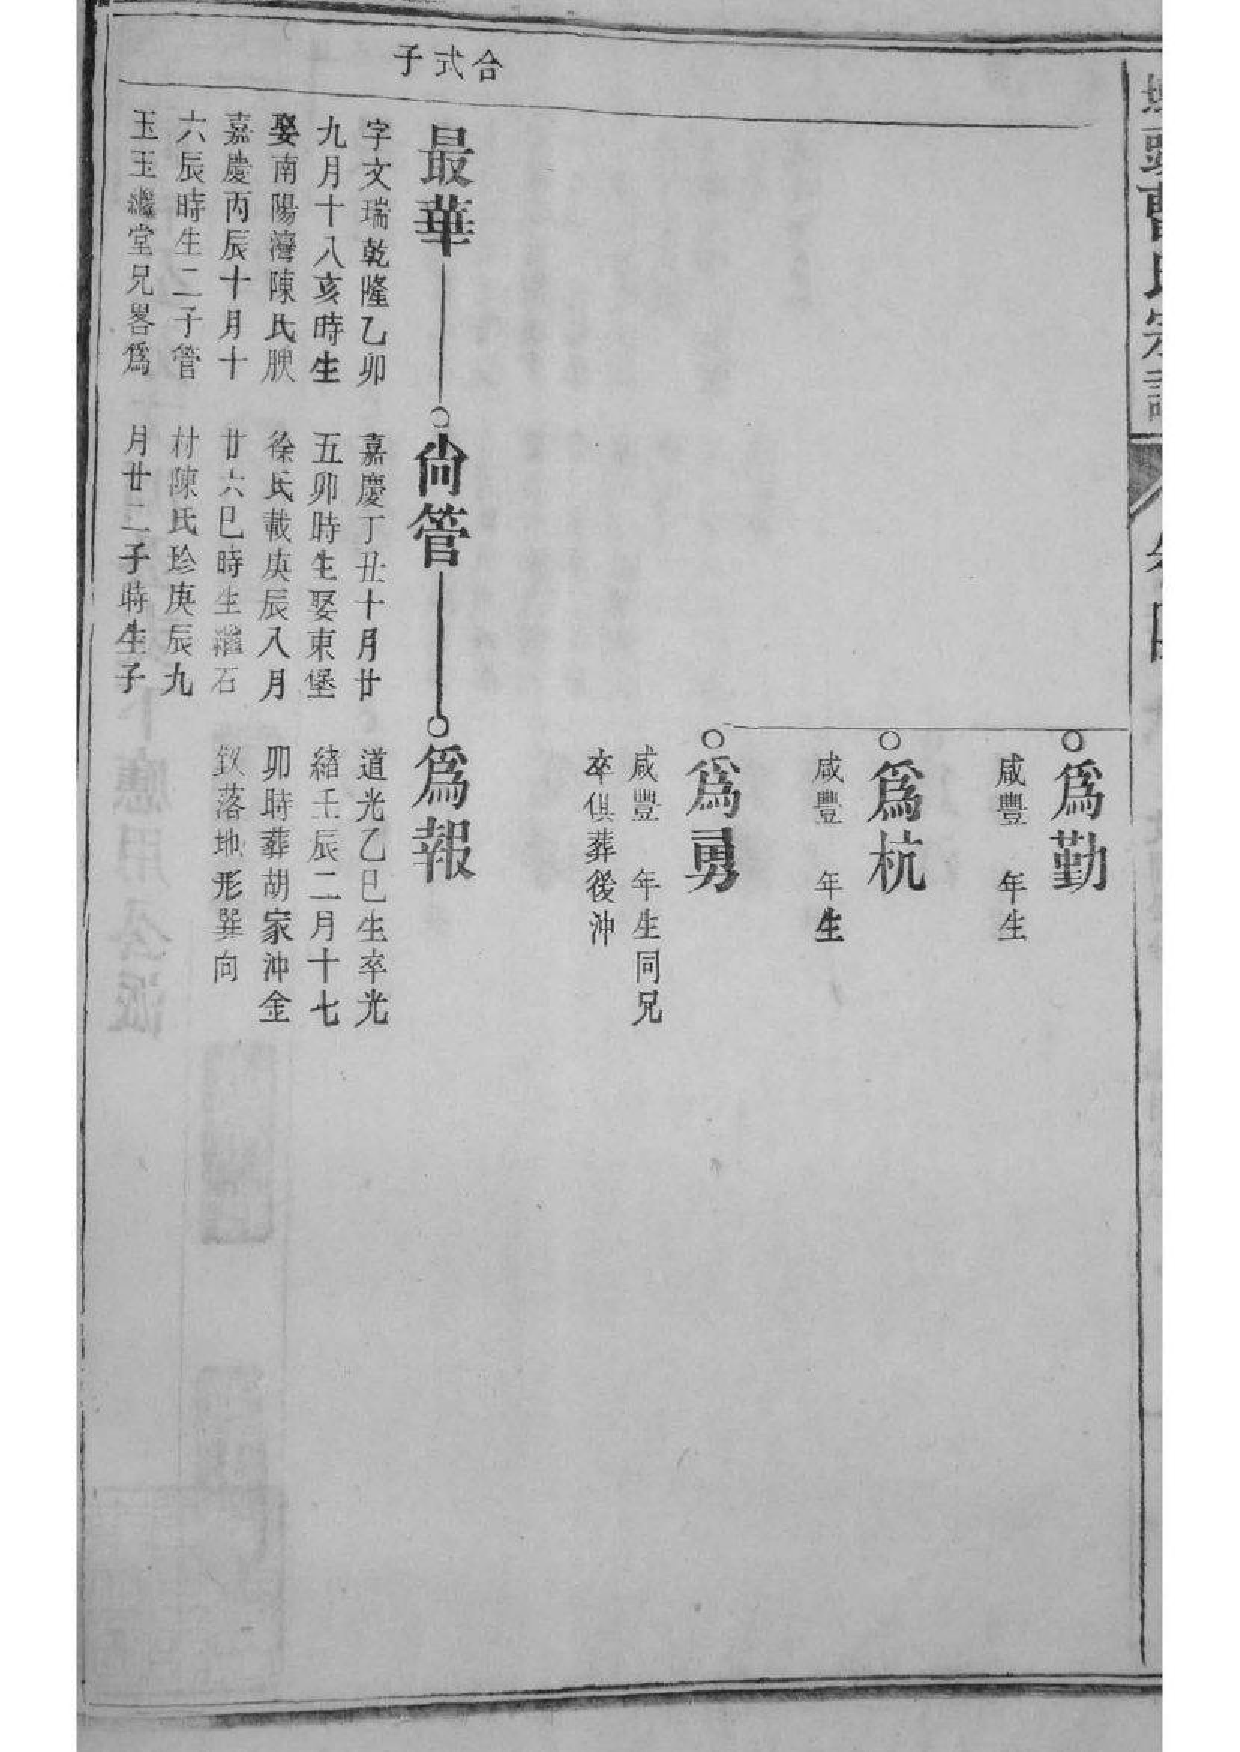 頭曹氏宗譜
合式子
為勤
咸豐 年生
為杭
咸豐 年生
為勇
咸豐 年生同兄
卒俱葬後沖
最華
字文瑞乾隆乙卯
九月十八亥時生
娶南陽灣陳氏腴
嘉慶丙辰十月十
六辰時生二子管
玉玉繼堂兄畧為
尙管
嘉慶丁丑十月廿
五卯時生娶東堡
徐氏載庚辰八月
廿六巳時生繼石
村陳氏珍庚辰九
月廿二子時生子
為報
道光乙巳生卒光
緒壬辰二月十七
卯時葬胡家沖金
釵落地形巽向